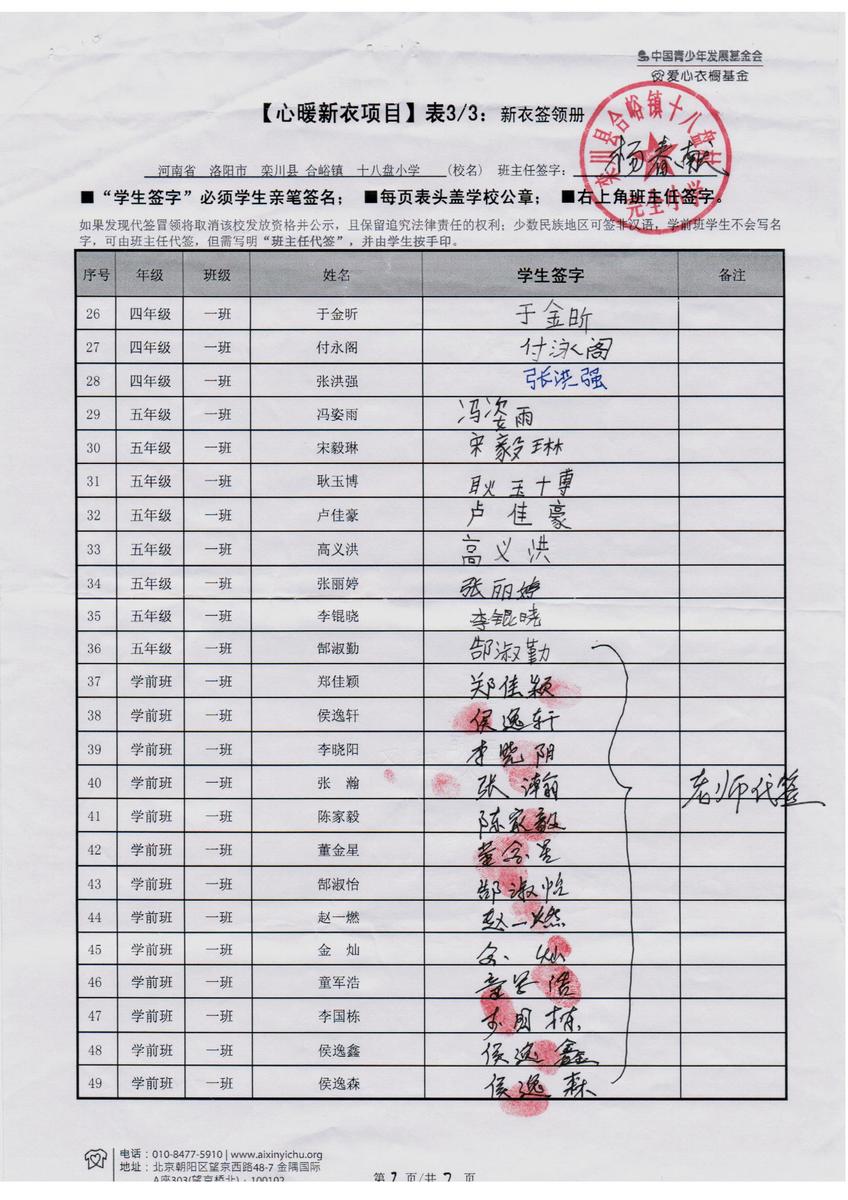 中国青少年发展基金会
爱心衣橱基金
【心暖新衣项目】表3/3：新衣签领册
栾川县合峪镇十八盘
完全小学
河南省 洛阳市 栾川县 合峪镇 十八盘小学 (校名) 班主任签字： 杨春献
■“学生签字”必须学生亲笔签名； ■每页表头盖学校公章； ■右上角班主任签字。
如果发现代签冒领将取消该校发放资格并公示，且保留追究法律责任的权利；少数民族地区可签非汉语，学前班学生不会写名
字，可由班主任代签，但需写明“班主任代签”，并由学生按手印。
序号 年级 班级 姓名 学生签字 备注
26 四年级 一班 于金昕 于金昕
27 四年级 一班 付永阁 付泳阁
28 四年级 一班 张洪强 张洪强
29 五年级 一班 冯姿雨 冯姿雨
30 五年级 一班 宋毅琳 宋毅琳
31 五年级 一班 耿玉博 耿玉博
32 五年级 一班 卢佳豪 卢佳豪
33 五年级 一班 高义洪 高义洪
34 五年级 一班 张丽婷 张丽婷
35 五年级 一班 李锟晓 李锟晓
36 五年级 一班 郜淑勤 郜淑勤
37 学前班 一班 郑佳颖 郑佳颖
38 学前班 一班 侯逸轩 侯逸轩
39 学前班 一班 李晓阳 李晓阳
40 学前班 一班 张 瀚 张 瀚 老师代签
41 学前班 一班 陈家毅 陈家毅
42 学前班 一班 董金星 董金星
43 学前班 一班 郜淑怡 郜淑怡
44 学前班 一班 赵一燃 赵一燃
45 学前班 一班 金 灿 金 灿
46 学前班 一班 童军浩 童军浩
47 学前班 一班 李国栋 李国栋
48 学前班 一班 侯逸鑫 侯逸鑫
49 学前班 一班 侯逸森 侯逸森
电话：010-8477-5910 | www.aixinyichu.org
地址：北京朝阳区望京西路48-7 金隅国际
A座303(望京桥北)·100102
第 2 页/共 2 页